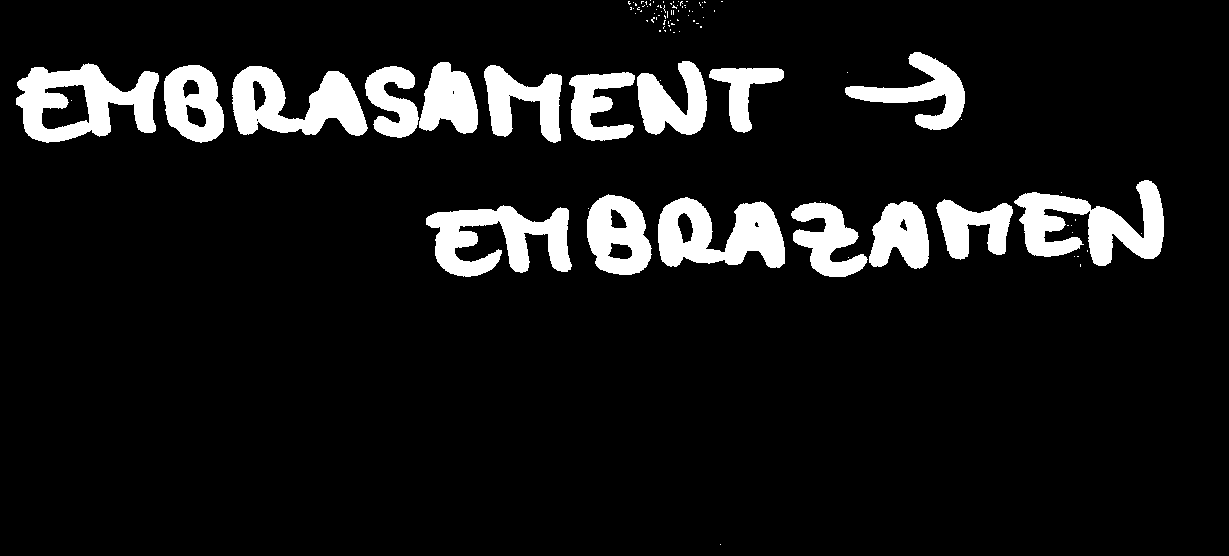 EMBRASAMENT →
EMBRAZAMEN